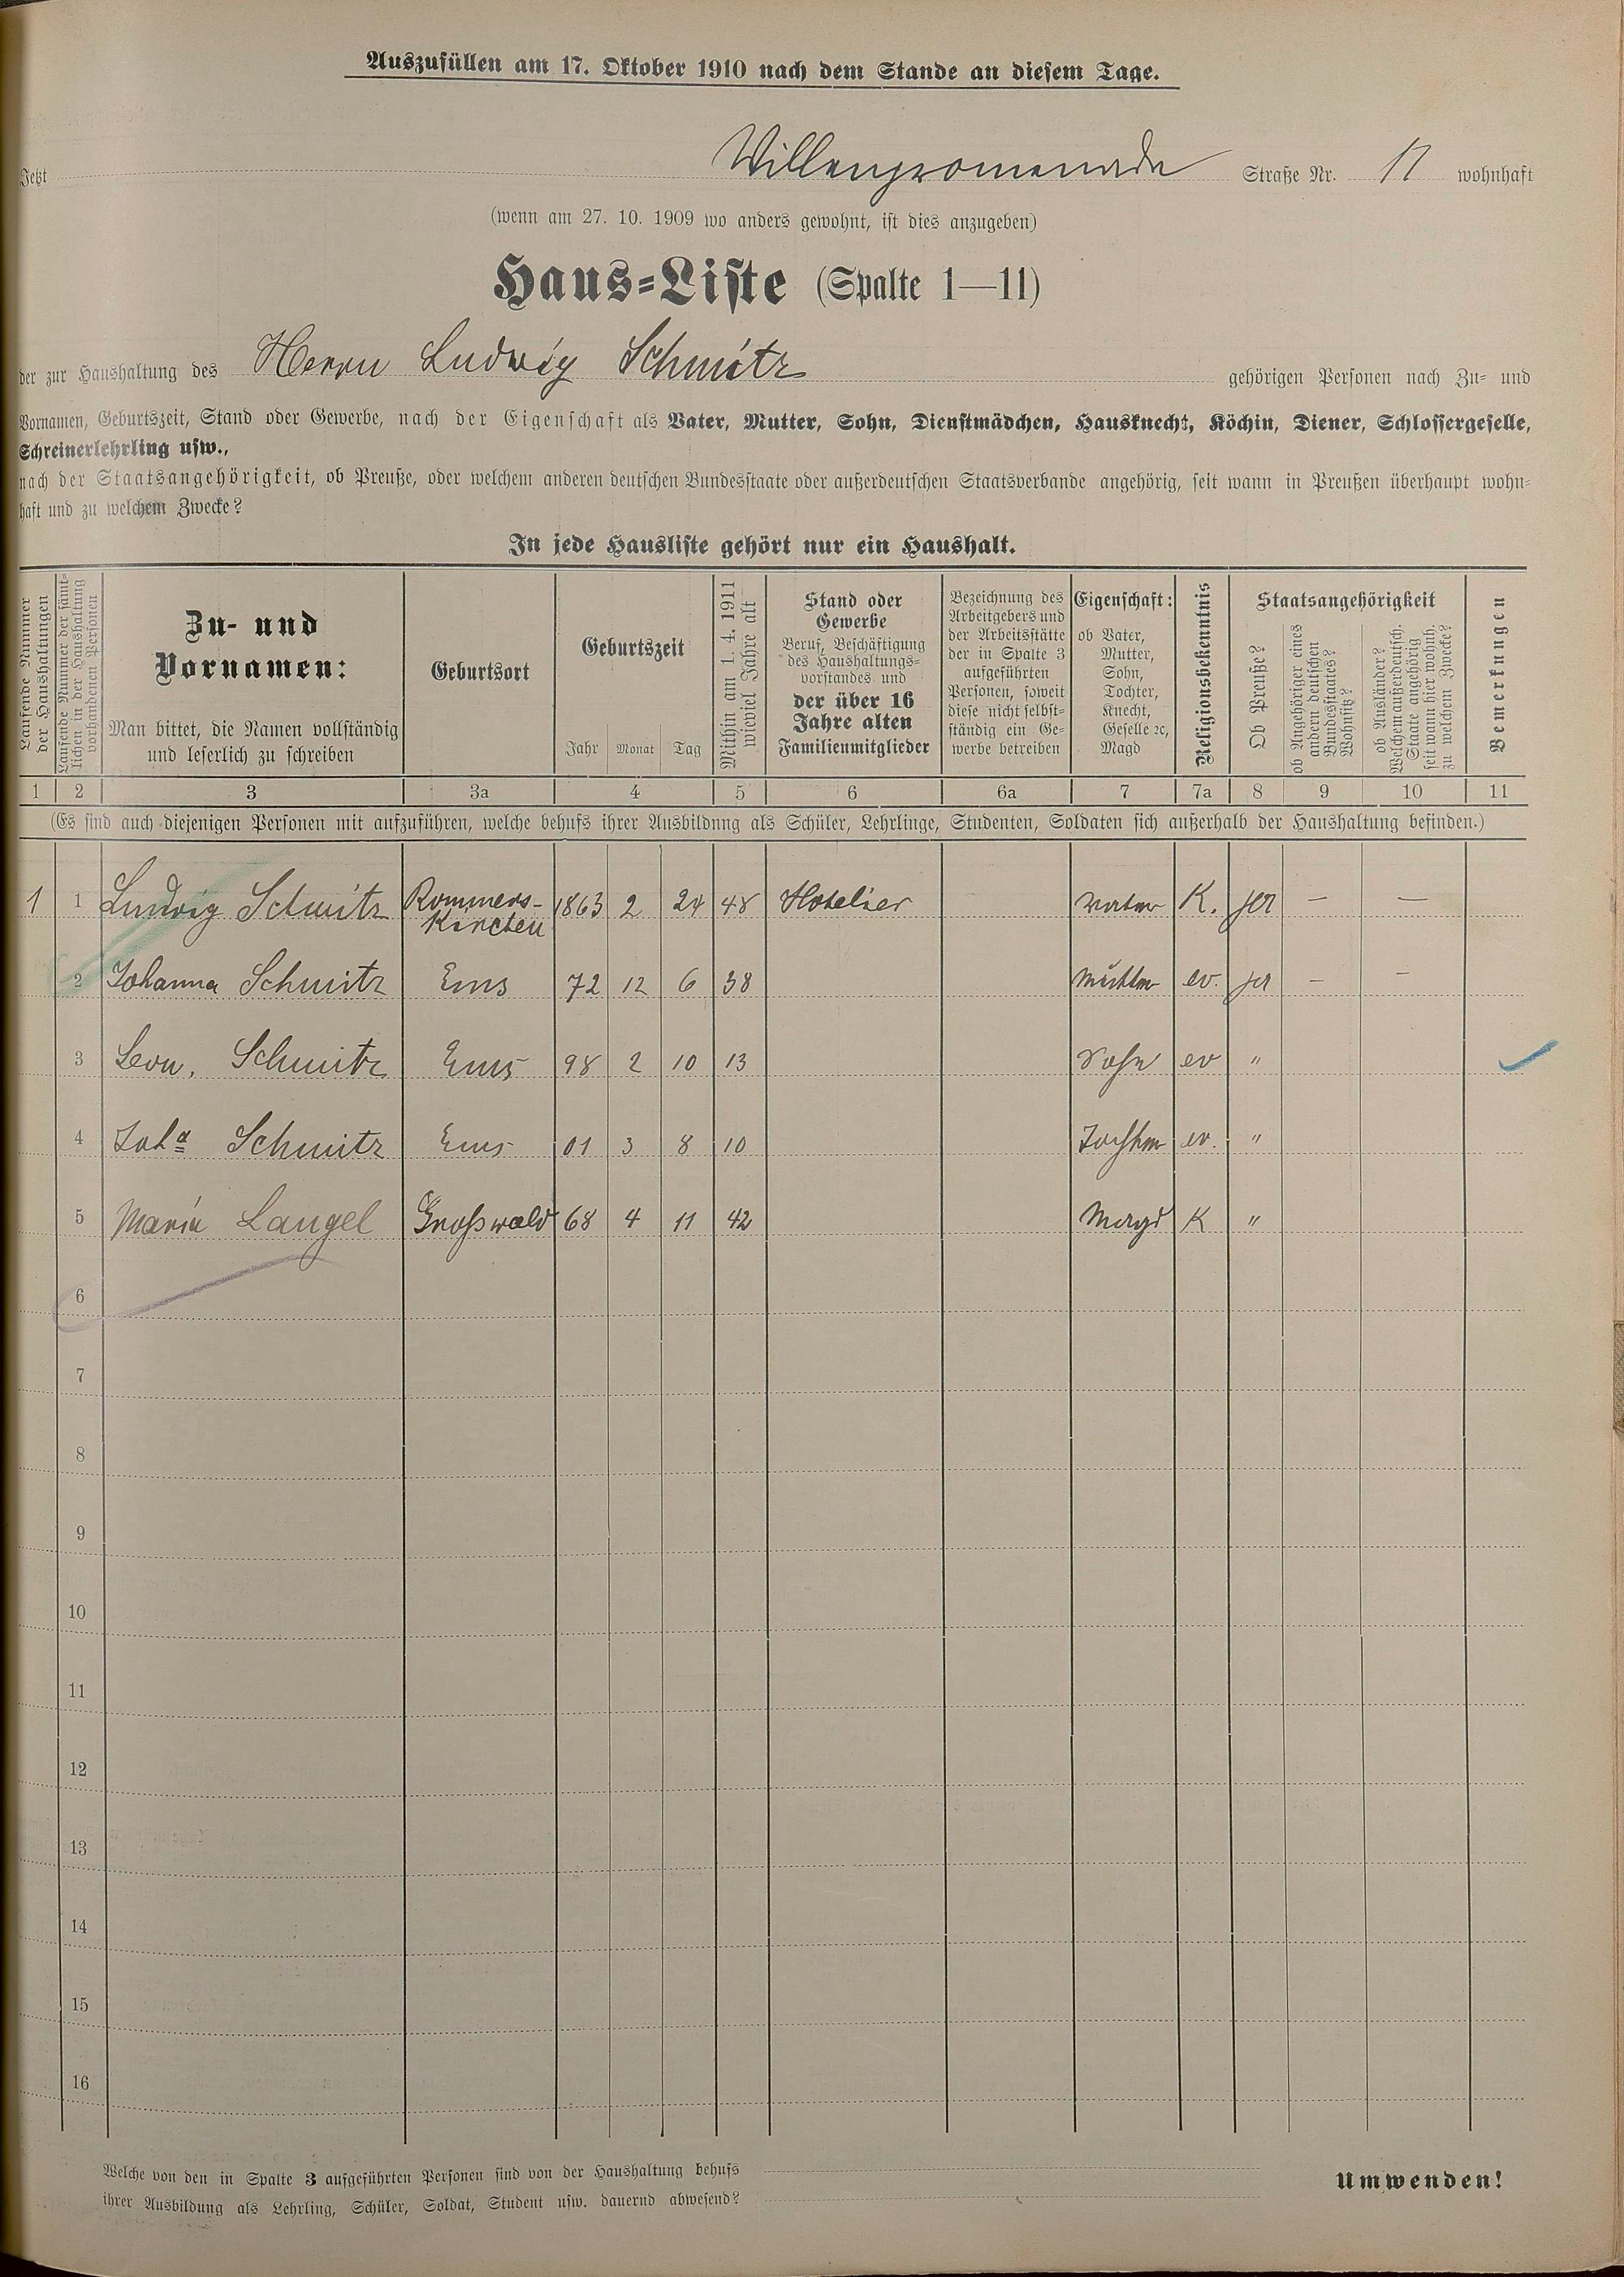 Auszufüllen am 17. Oktober 1910 nach dem Stande an diesem Tage.
Jetzt Villenpromenade Straße Nr. 11 wohnhaft
(wenn am 27. 10. 1909 wo anders gewohnt, ist dies anzugeben)
Haus-Liste (Spalte 1—11)
der zur Haushaltung des Herrn Ludwig Schmitz gehörigen Personen nach Zu- und
Vornamen, Geburtszeit, Stand oder Gewerbe, nach der Eigenschaft als Vater, Mutter, Sohn, Dienstmädchen, Hausknecht, Köchin, Diener, Schlossergeselle,
Schreinerlehrling usw.,
nach der Staatsangehörigkeit, ob Preuße, oder welchem anderen deutschen Bundesstaate oder außerdeutschen Staatsverbande angehörig, seit wann in Preußen überhaupt wohn-
haft und zu welchem Zwecke?
In jede Hausliste gehört nur ein Haushalt.
Laufende Nummer
der Haushaltungen
Laufende Nummer der sämt-
lichen in der Haushaltung
vorhandenen Personen
Zu- und
Vornamen:
Man bittet, die Namen vollständig
und leserlich zu schreiben
Geburtsort
Geburtszeit
Jahr Monat Tag
Mithin am 1. 4. 1911
wieviel Jahre alt
Stand oder
Gewerbe
Beruf, Beschäftigung
des Haushaltungs-
vorstandes und
der über 16
Jahre alten
Familienmitglieder
Bezeichnung des
Arbeitgebers und
der Arbeitsstätte
der in Spalte 3
aufgeführten
Personen, soweit
diese nicht selbst-
ständig ein Ge-
werbe betreiben
Eigenschaft:
ob Vater,
Mutter,
Sohn,
Tochter,
Knecht,
Geselle ꝛc,
Magd
Religionsbekenntnis
Staatsangehörigkeit
Ob Preuße?
ob Angehöriger eines
andern deutschen
Bundesstaates?
Wohnsitz?
ob Ausländer?
Welchem außerdeutsch.
Staate angehörig
seit wann hier wohnh.
zu welchem Zwecke?
Bemerkungen
1 2 3 3a 4 5 6 6a 7 7a 8 9 10 11
(Es sind auch diejenigen Personen mit aufzuführen, welche behufs ihrer Ausbildung als Schüler, Lehrlinge, Studenten, Soldaten sich außerhalb der Haushaltung befinden.)
1 1 Ludwig Schmitz Rommers-
Kirchen 1863 2 24 48 Hotelier Vater K. ja — —
2 Johanna Schmitz Ems 72 12 6 38 Mutter ev. ja — —
3 Leon. Schmitz Ems 98 2 10 13 Sohn ev "
4 Joha Schmitz Ems 01 3 8 10 Tochter ev. "
5 Maria Langel Großwald 68 4 11 42 Magd K "
6
7
8
9
10
11
12
13
14
15
16
Welche von den in Spalte 3 aufgeführten Personen sind von der Haushaltung behufs
ihrer Ausbildung als Lehrling, Schüler, Soldat, Student usw. dauernd abwesend?
Umwenden!